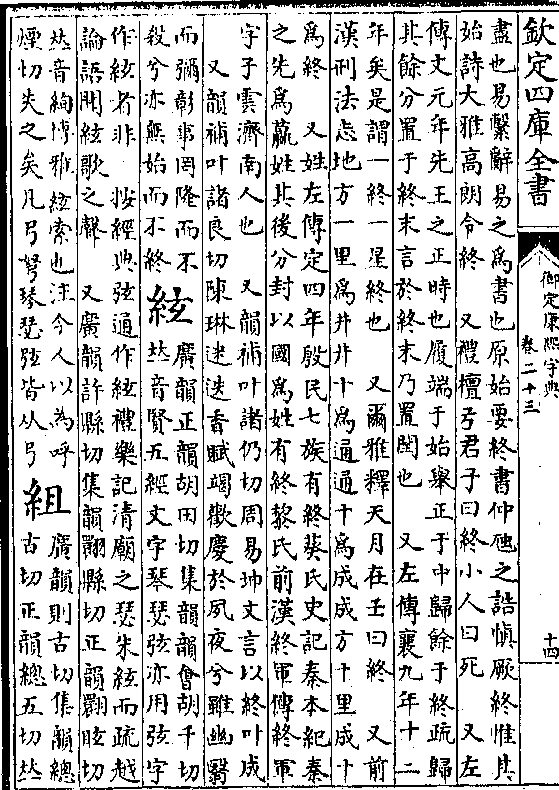 欽定四庫全書
御定康熙字典
卷二十三
十四
盡也易繫辭易之為書也原始要終書仲虺之誥慎厥終惟其
始詩大雅高朗令終 又禮檀弓君子曰終小人曰死 又左
傳文元年先王之正時也履端于始舉正于中歸餘于終疏歸
其餘分置于終末言於終末乃置閏也 又左傳襄九年十二
年矣是謂一終一星終也 又爾雅釋天月在壬曰終 又前
漢刑法志地方一里爲井井十爲通通十爲成成方十里成十
爲終 又姓左傳定四年殷民七族有終葵氏史記秦本紀秦
之先爲嬴姓其後分封以國爲姓有終黎氏前漢終軍傳終軍
字子雲濟南人也 又韻補叶諸仍切周易坤文言以終叶成
又韻補叶諸良切陳琳迷迭香賦竭歡慶於夙夜兮雖幽翳
而彌彰事罔隆而不
殺兮亦無始而不終
絃
廣韻正韻胡田切集韻韻會胡千切
𠀤音賢五經文字琴瑟弦亦用弦字
作絃者非 按經典弦通作絃禮樂記清廟之瑟朱絃而疏越
論語聞絃歌之聲 又廣韻許縣切集韻翾縣切正韻翾眩切
𠀤音絢博雅絃索也注今人以為呼
煙切失之矣凡弓弩琴瑟弦皆从弓
組
廣韻則古切集韻總
古切正韻總五切𠀤